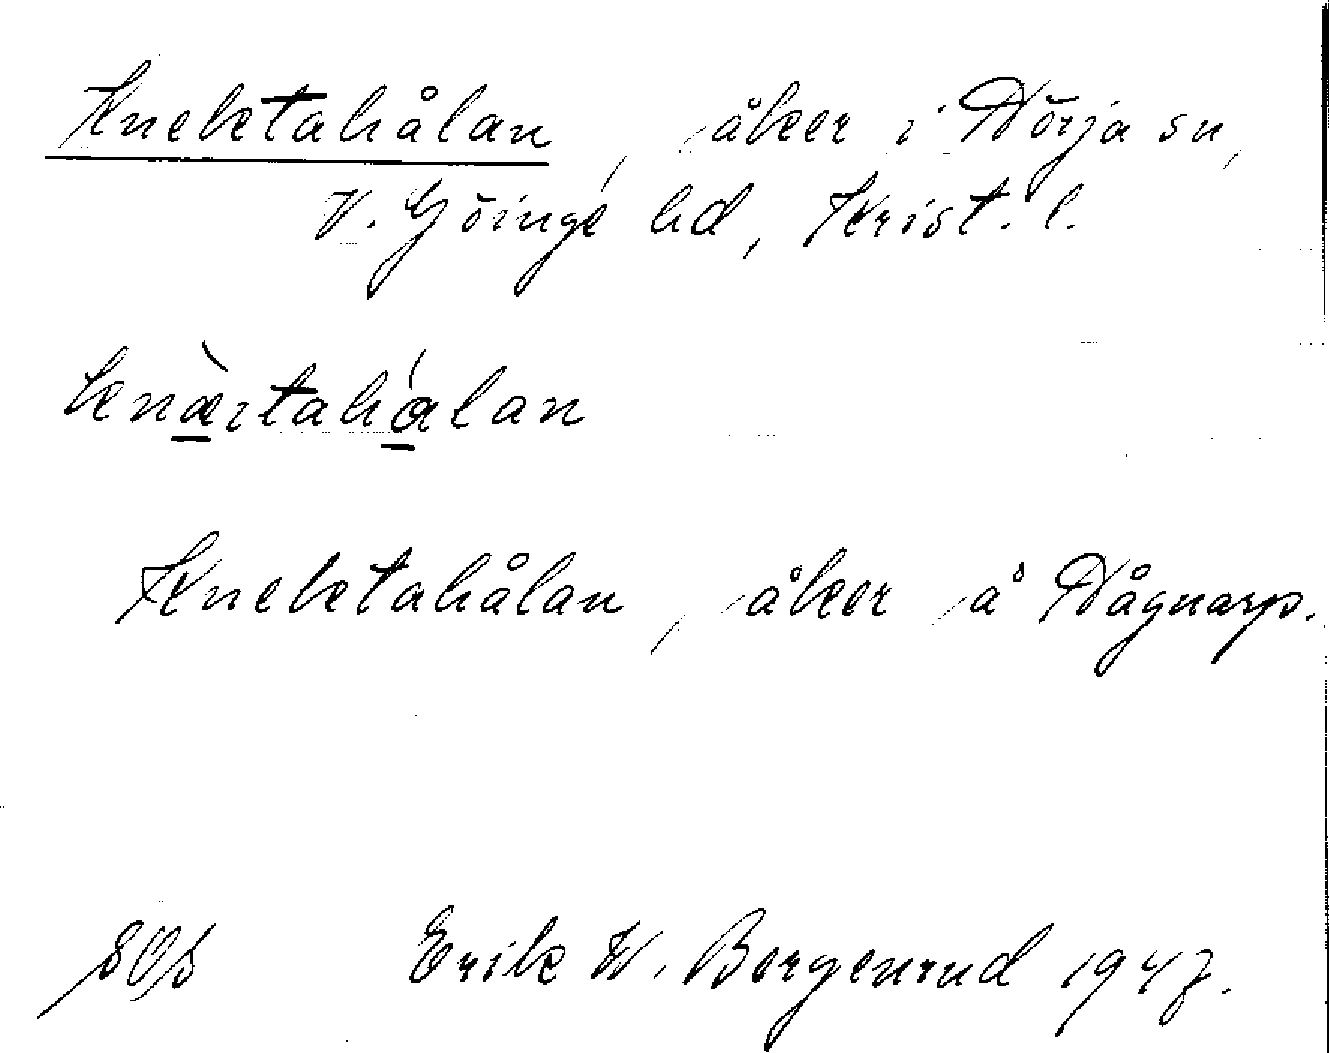 Knektahålan, åker i Nörja sn,
V. Göinge hd, Krist. l.
knæ̀ktahǻlan
Knektahålan, åker å Någnarp.
SOS Erik W. Bergenrud 1947.